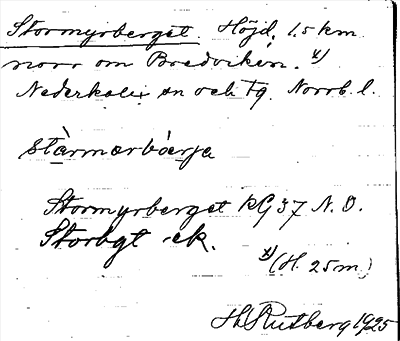 Stormyrberget. Höjd, 1.5 km
norr om Bredviken. x)
Nederkalix sn och tg. Norrb. l.
stàrmœrbóœrja
Stormyrberget KG 37 N.O.
Storbgt ek.
x) (H. 25 m.)
Hh Rutberg 1925